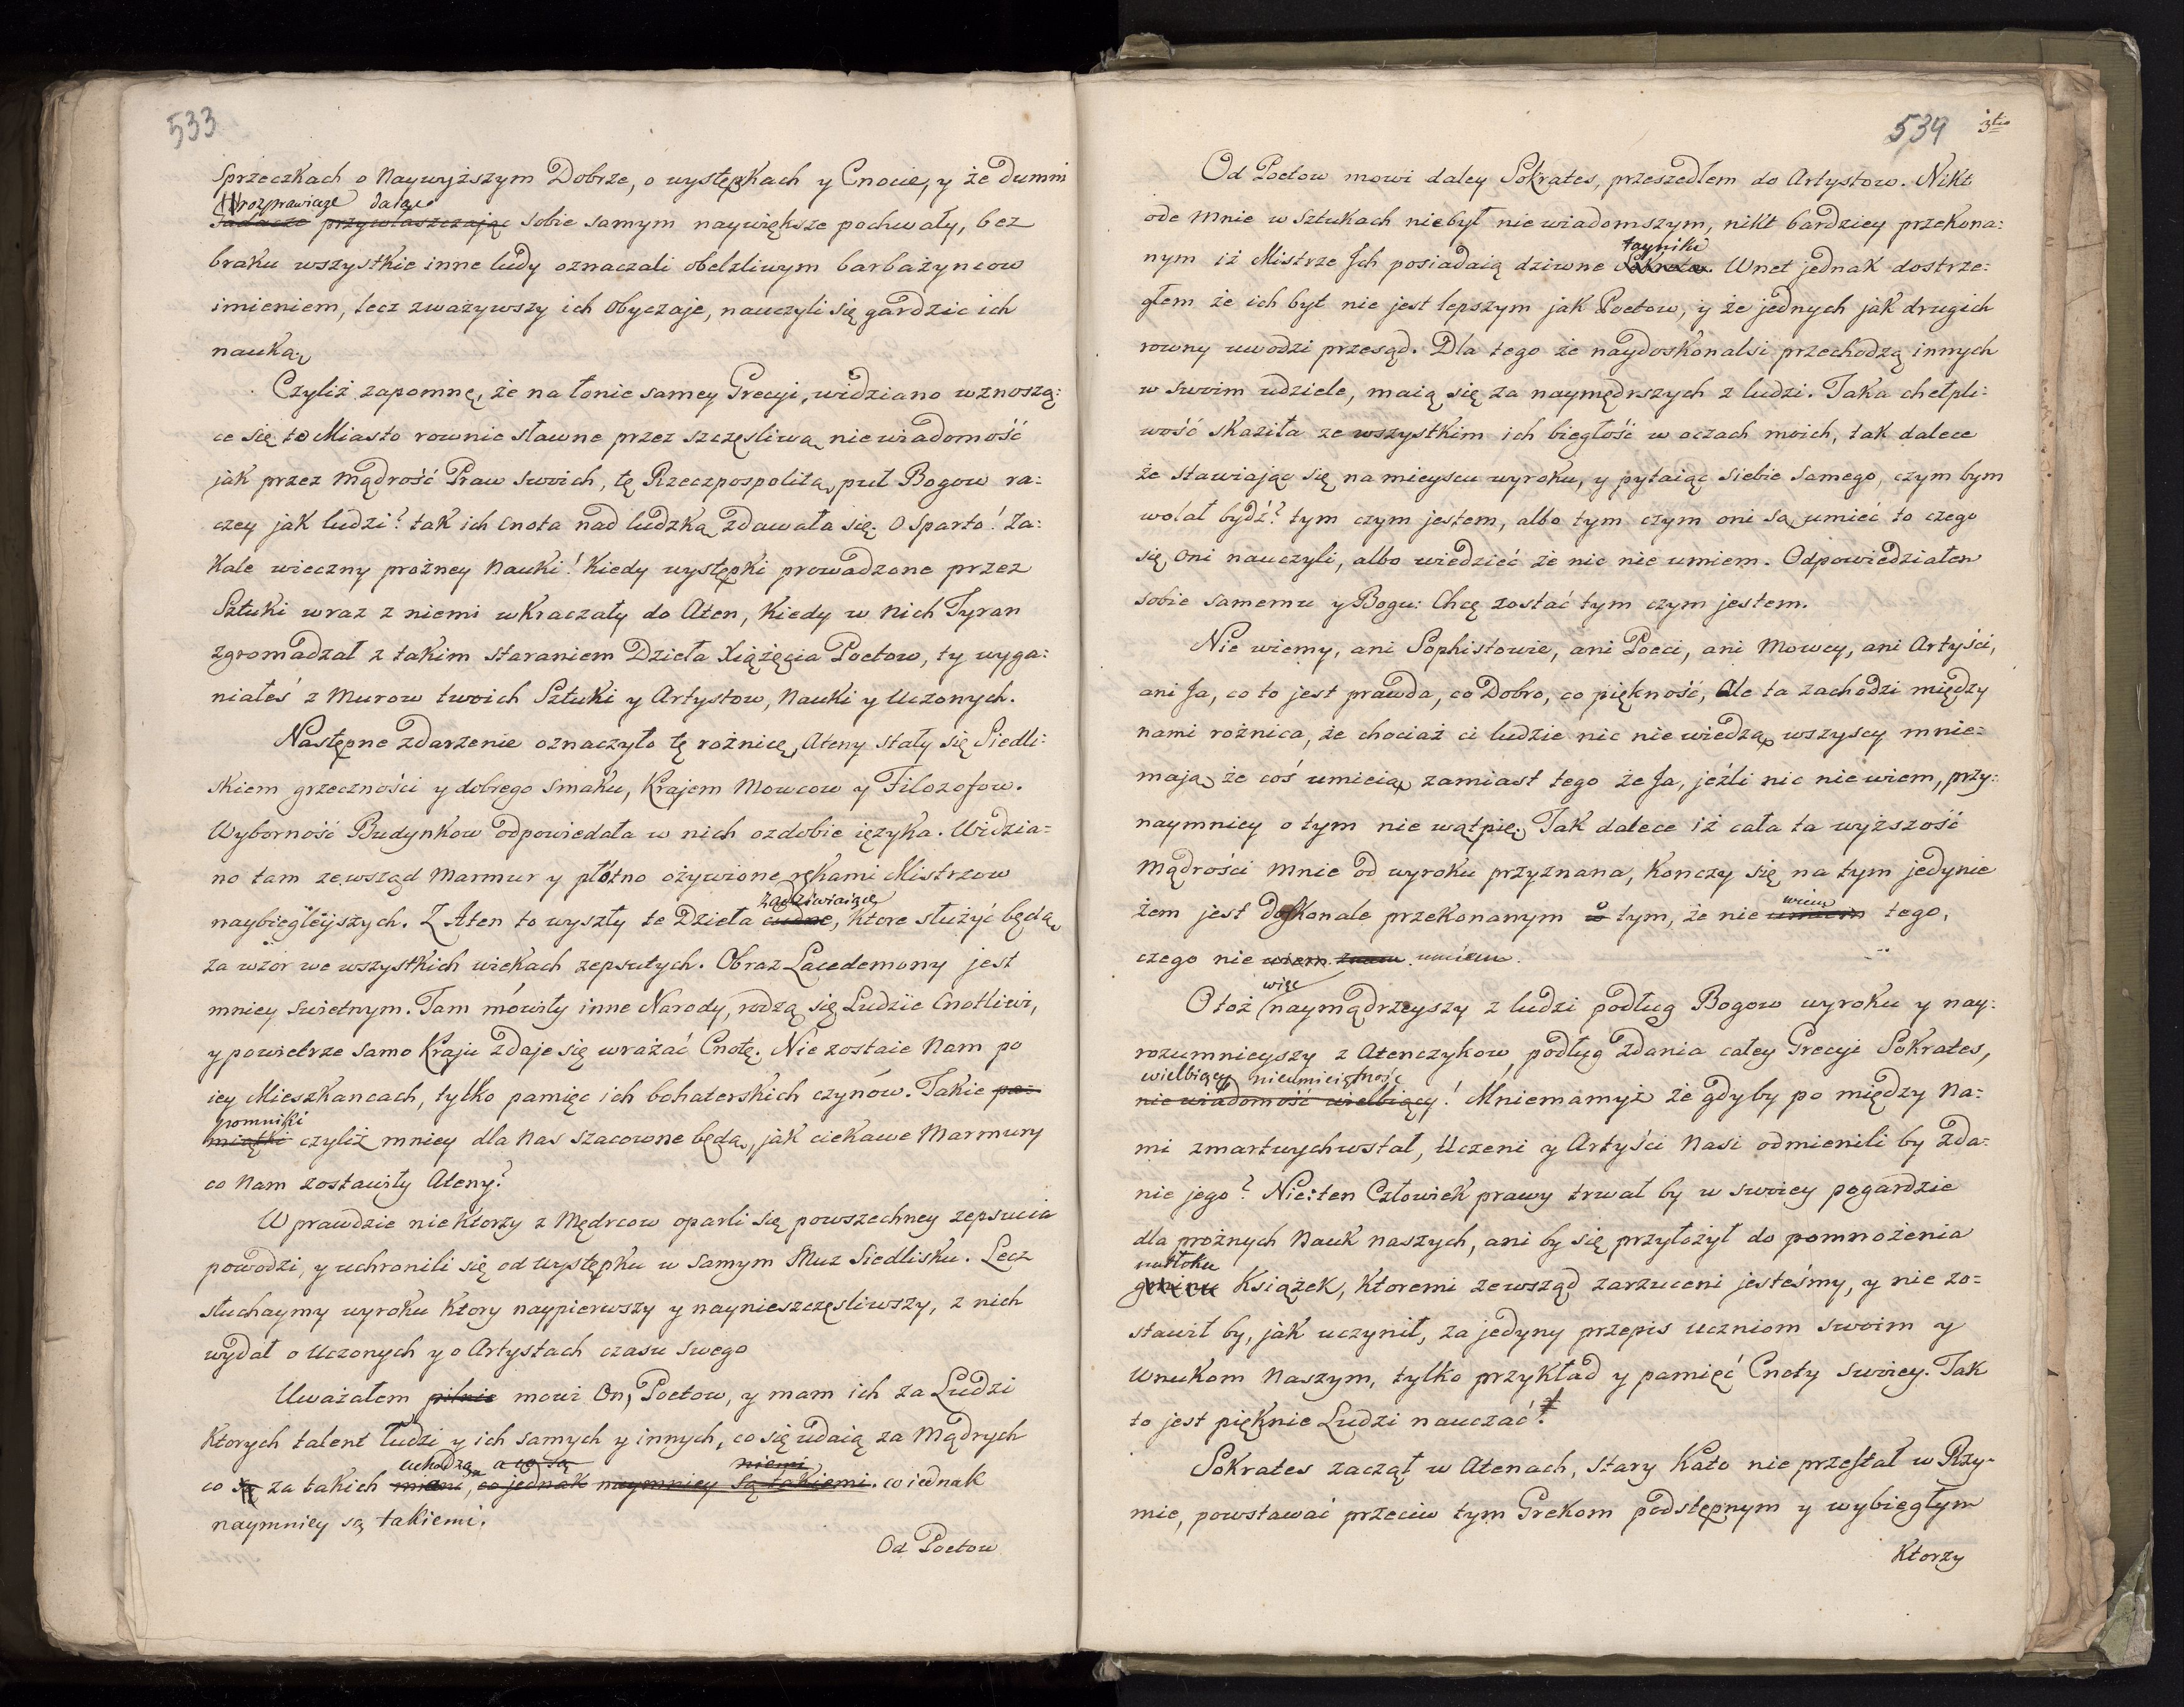 533
sprzeczkach o Naywyższym Dobrze, o występkach y Cnocie, y że dumni
rozprawiacze dając
Badacze przywłaszczając sobie samym naywiększe pochwały, bez
braku wszystkie inne ludy oznaczali obelzliwym barbażyncow
imieniem, lecz zważywszy ich Obyczaje, nauczyli się gardzic ich
nauką.
Czyliż zapomnę, że na łonie samey Grecyi, widziano wznoszą:
ce się to Miasto rownie sławne przez szczęsliwą niewiadomość
jak przez Mądrość Praw swoich, tę Rzeczpospolitą, puł Bogow ra:
czey jak ludzi? tak ich Cnota nad ludzką zdawała się. O Sparto! Za:
kale wieczny prożney Nauki! Kiedy występki prowadzone przez
Sztuki wraz z niemi wkraczały do Aten, Kiedy w nich Tyran
zgromadzał z takim staraniem Dzieła Xiążęcia Poetow, ty wyga:
niałeś z Murow twoich Sztuki y Artystow, Nauki y Uczonych.
Następne zdarzenie oznaczyło tę rożnicę, Ateny stały się Siedli:
skiem grzeczności y dobrego smaku, Krajem Mowcow y Filozofow.
Wyborność Budynkow odpowiedała w nich ozdobie ięzyka. Widzia=
no tam zewsząd Marmur y płótno ożywione rękami Mistrzow
zadziwiaiące
naybiegleyszych. Z Aten to wyszły te Dzieła cudne, Ktore służyć będą
za wzor we wszystkich wiekach zepsutych. Obraz Lacedemony jest
mniey swietnym. Tam mówiły inne Narody, rodzą się Ludzie Cnotliwi,
y powietrze samo Kraju zdaje się wrażać Cnotę. Nie zostaie Nam po
iey Mieszkancach, tylko pamięc ich bohaterskich czynów. Takie pa=
pomniki
miątki czyliż mniey dla Nas szacowne będą, jak ciekawe Marmury
co Nam zostawiły Ateny?
W prawdzie niektorzy z Mędrcow oparli się powszechney zepsucia
powodzi, y uchronili się od występku w samym Muz Siedlisku. Lecz
słuchaymy wyroku Ktory naypierwszy y naynieszczęsliwszy, z nich
wydał o Uczonych y o Artystach czasu swego
Uważałem pilnie mowi On, Poetow, y mam ich za Ludzi
Ktorych talent łudzi y ich samych y innych, co się udaią za Mądrych
uchodzą, a co są niemi
co są za takich miani, co jednak naymniey są takiemi. co iednak
naymniey są takiemi.
Od Poetow
534 3tio
Od Poetow mowi daley Sokrates, przeszedłem do Artystow. Nikt
ode Mnie w Sztukach niebył niewiadomszym, nikt bardziey przekona:
tayniki
nym iż Mistrze Ich posiadaią dziwne Sekreta. Wnet jednak dostrze:
głem że ich byt nie jest lepszym jak Poetow, y że jednych jak drugich
rowny uwodzi przesąd. Dla tego że naydoskonalsi przechodzą innych
w swoim udziele, maią się za naymędrszych z ludzi. Taka chełpli:
wość skaziła ze wszystkim ich biegłość w oczach moich, tak dalece
że stawiając się na mieyscu wyroku, y pytaiąc siebie samego, czym bym
wolał bydź? tym czym jestem, albo tym czym oni są, umieć to czego
się oni nauczyli, albo wiedzieć że nic nie umiem. Odpowiedziałem
sobie samemu y Bogu: Chcę zostać tym czym jestem.
Nie wiemy, ani Sophistowie, ani Poeci, ani Mowcy, ani Artyści,
ani Ja, co to jest prawda, co Dobro, co piękność, Ale ta zachodzi między
nami rożnica, że chociaż ci ludzie nic nie wiedzą, wszyscy mnie=
mają że coś umieią, zamiast tego że Ja, jeźli nic nie wiem, przy:
naymniey o tym nie wątpię. Tak dalece iż cała ta wyższość
Mądrości Mnie od wyroku przyznana, Konczy się na tym jedynie
o wiem
żem jest doskonale przekonanym w tym, że nie umiem tego,
czego nie wiem znam umiem.
więc
Otoż naymądrzeyszy z ludzi podług Bogow wyroku y nay:
rozumnieyszy z Atenczykow, podług zdania całey Grecyi Sokrates,
wielbiący nieumieiętność
niewiadomość wielbiący! Mniemamyż że gdyby po między Na=
mi zmartwychwstał, Uczeni y Artyści Nasi odmienili by Zda=
nie jego? Nie: ten Człowiek prawy trwał by w swoiey pogardzie
dla prożnych Nauk naszych, ani by się przyłożył do pomnożenia
natłoku
gminu Książek, Ktoremi zewsząd zarzuceni jesteśmy, y nie zo=
stawił by, jak uczynił, za jedyny przepis uczniom swoim y
Wnukom Naszym, tylko przykład y pamięć Cnoty swoiey. Tak
to jest pięknie Ludzi nauczać!
Sokrates zaczął w Atenach, Stary Kato nie przestał w Rzy=
mie, powstawać przeciw tym Grekom podstępnym y wybiegłym
Ktorzy